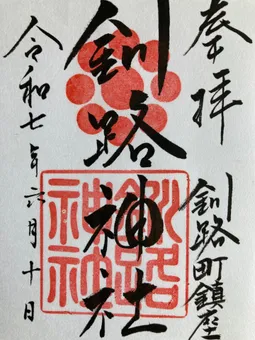 奉拝
釧路町鎮座
釧路神社
令和七年六月十日
釧路神社